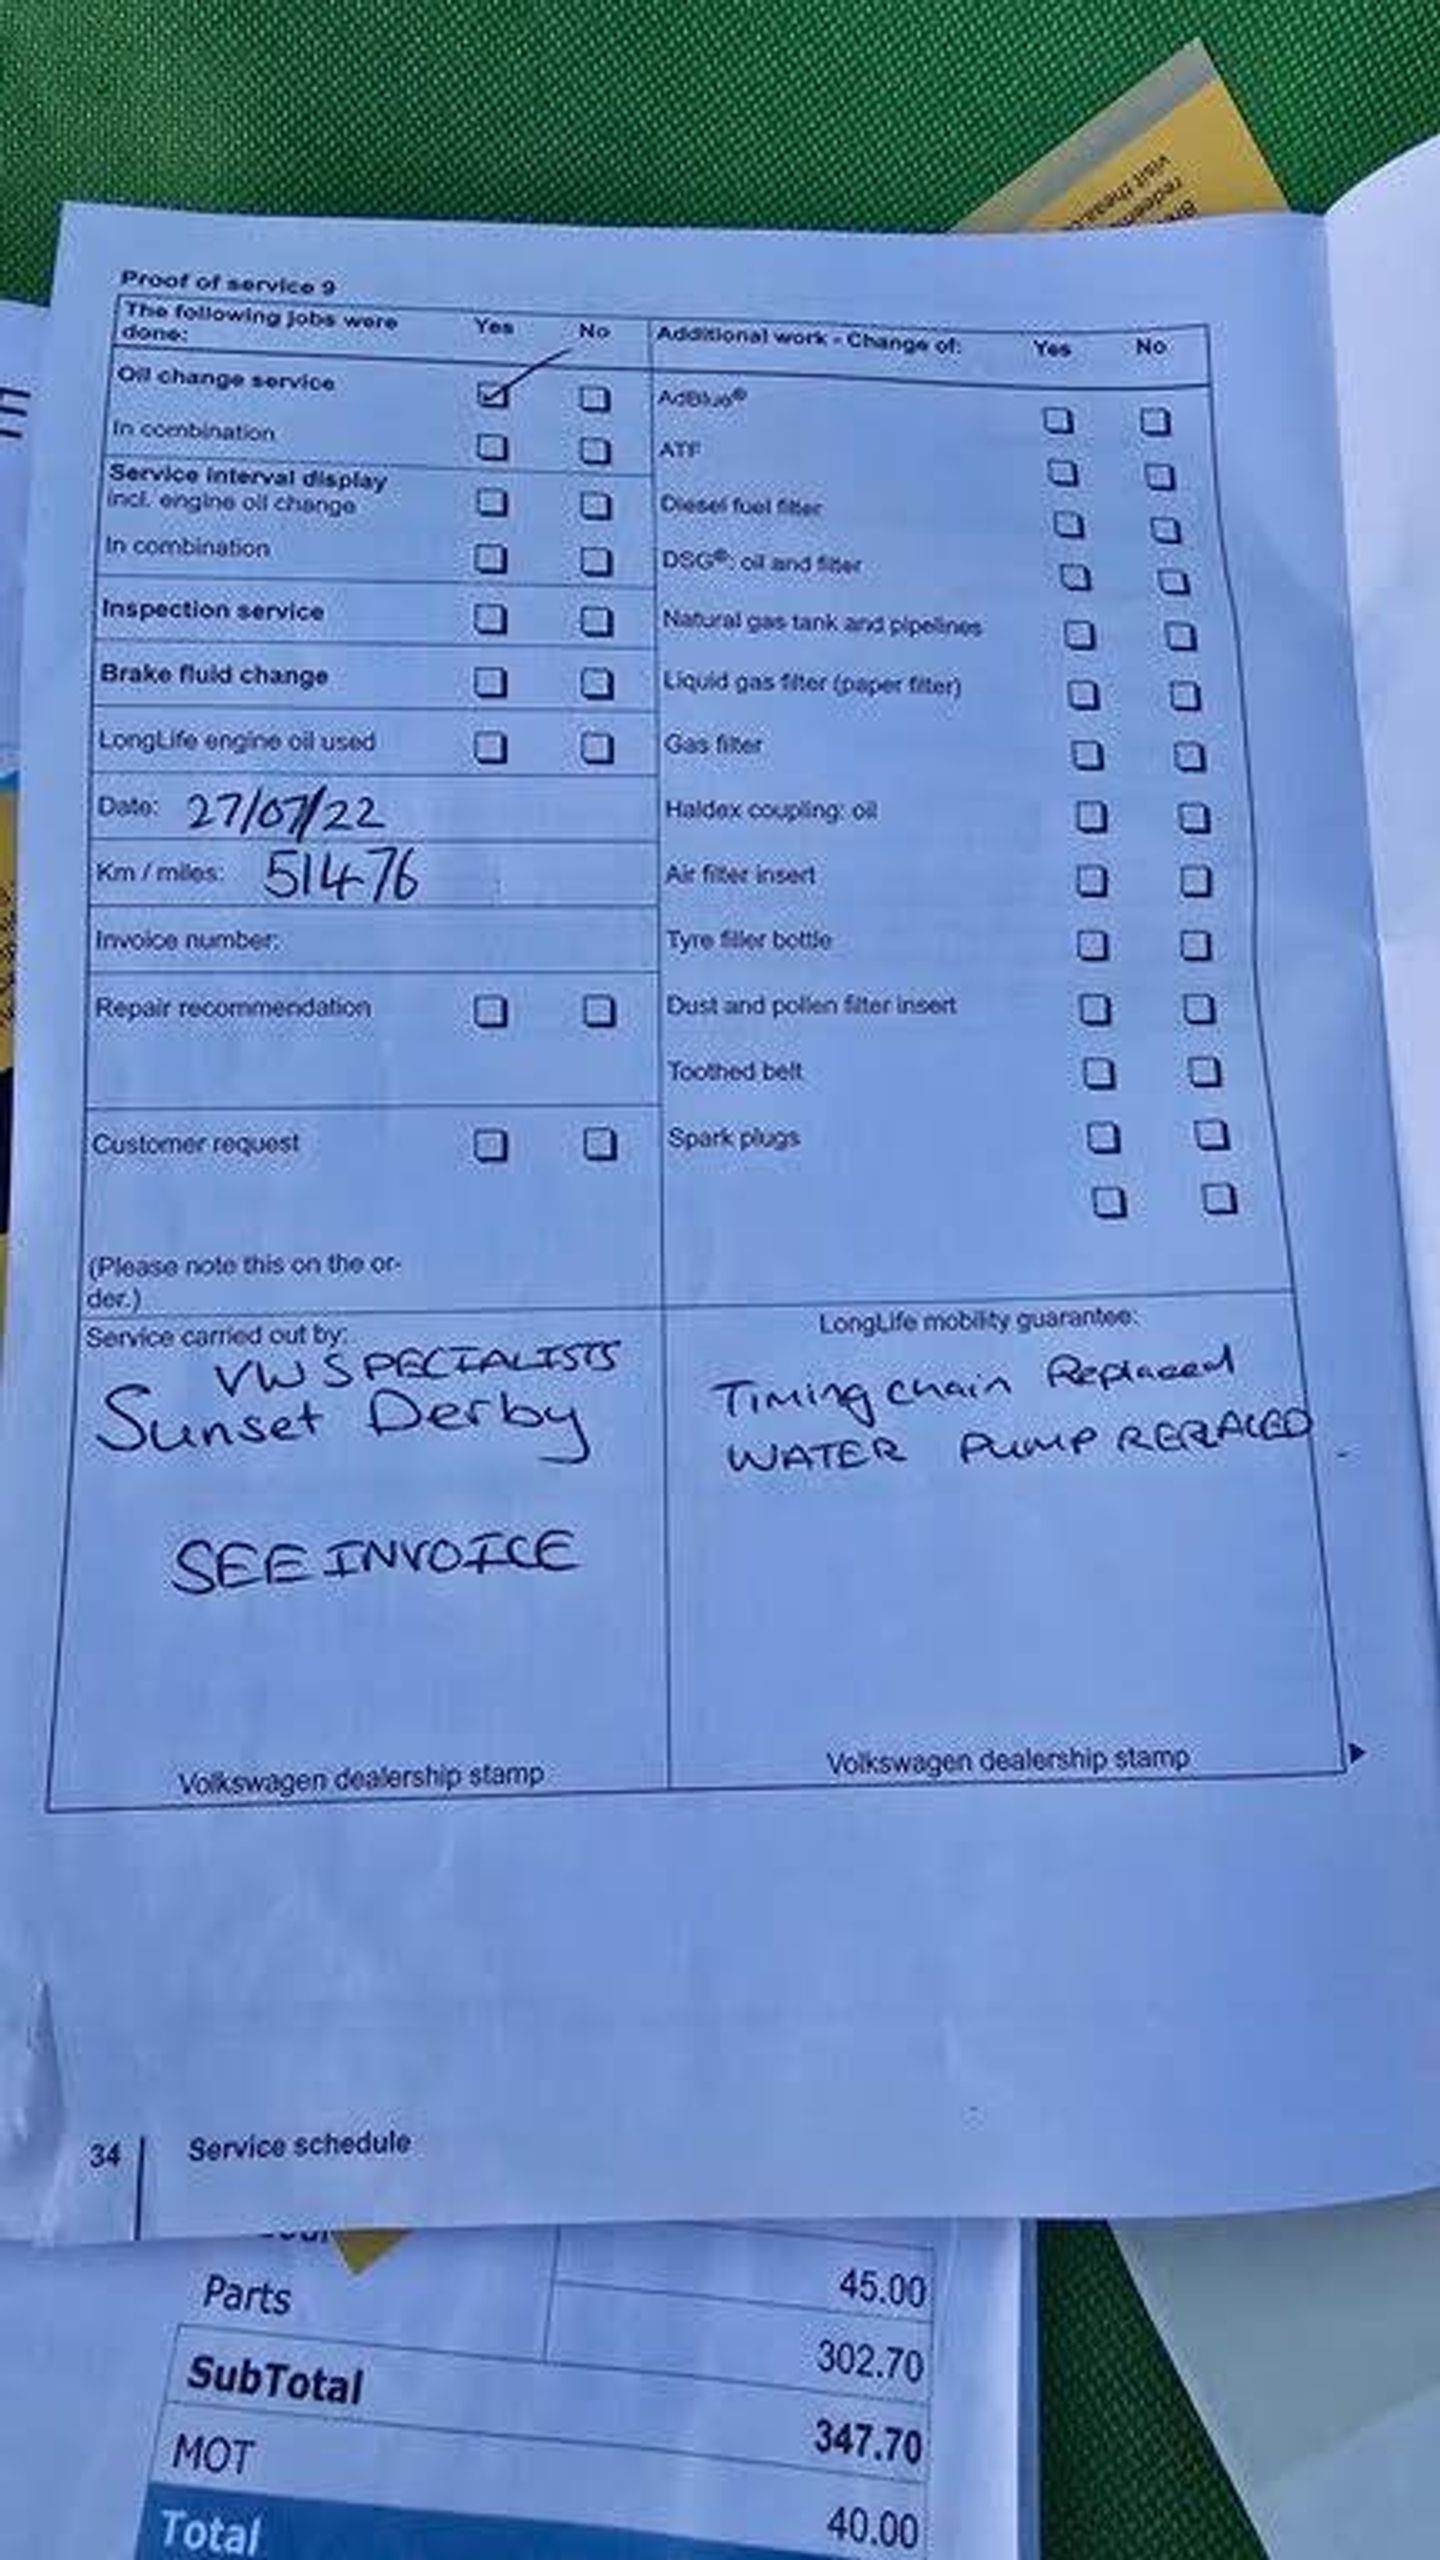 Proof of service 9
The following jobs were
done:
Yes
No
Oil change service
In combination
Service interval display
incl. engine oil change
In combination
Inspection service
Brake fluid change
LongLife engine oil used
Date: 27/07/22
Km / miles: 51476
Invoice number:
Repair recommendation
Customer request
(Please note this on the or-
der.)
Additional work - Change of:
Yes
No
AdBlue®
ATF
Diesel fuel filter
DSG®: oil and filter
Natural gas tank and pipelines
Liquid gas filter (paper filter)
Gas filter
Haldex coupling: oil
Air filter insert
Tyre filler bottle
Dust and pollen filter insert
Toothed belt
Spark plugs
Service carried out by:
VW SPECIALISTS
Sunset Derby
SEE INVOICE
Volkswagen dealership stamp
LongLife mobility guarantee:
Timing chain Replaced
WATER PUMP REPLACED
Volkswagen dealership stamp
34
Service schedule
45.00
Parts
302.70
SubTotal
347.70
MOT
40.00
Total